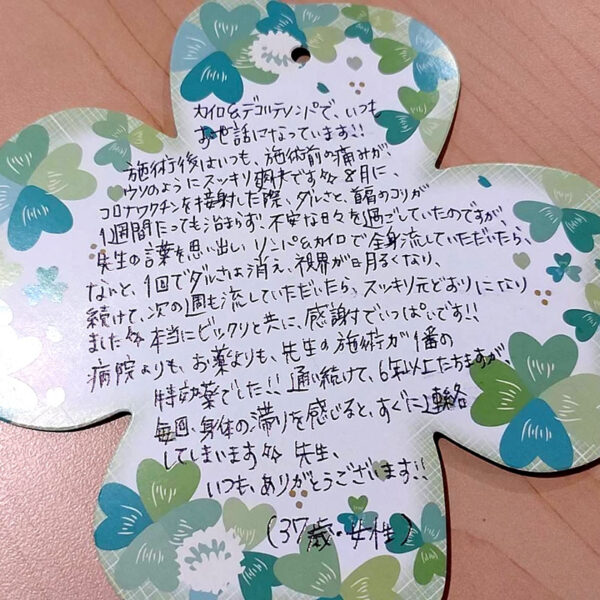 カイロ&デコルテリンパで、いつも
お世話になっています!!
施術後はいつも、施術前の痛みが
ウソのようにスッキリ爽快です☆☆ 8月に、
コロナワクチンを接射した際、ダルさと、首肩のコリが
1週間たっても治まらず、不安な日々を過ごしていたのですが、
先生の言葉を思い出し リンパ&カイロで全身流していただいたら、
なんと、1回でダルさは消え、視界が明るくなり、
続けて、次の週も流していただいたら、スッキリ元どおりになり
ました☆☆ 本当にビックリと共に、感謝でいっぱいです!!
病院よりも、お薬よりも、先生の施術が1番の
特効薬でした!! 通い続けて、6年以上たちますが、
毎回、身体の滞りを感じると、すぐに連絡
してしまいます☆☆ 先生、
いつも、ありがとうございます!!
(37歳・女性)